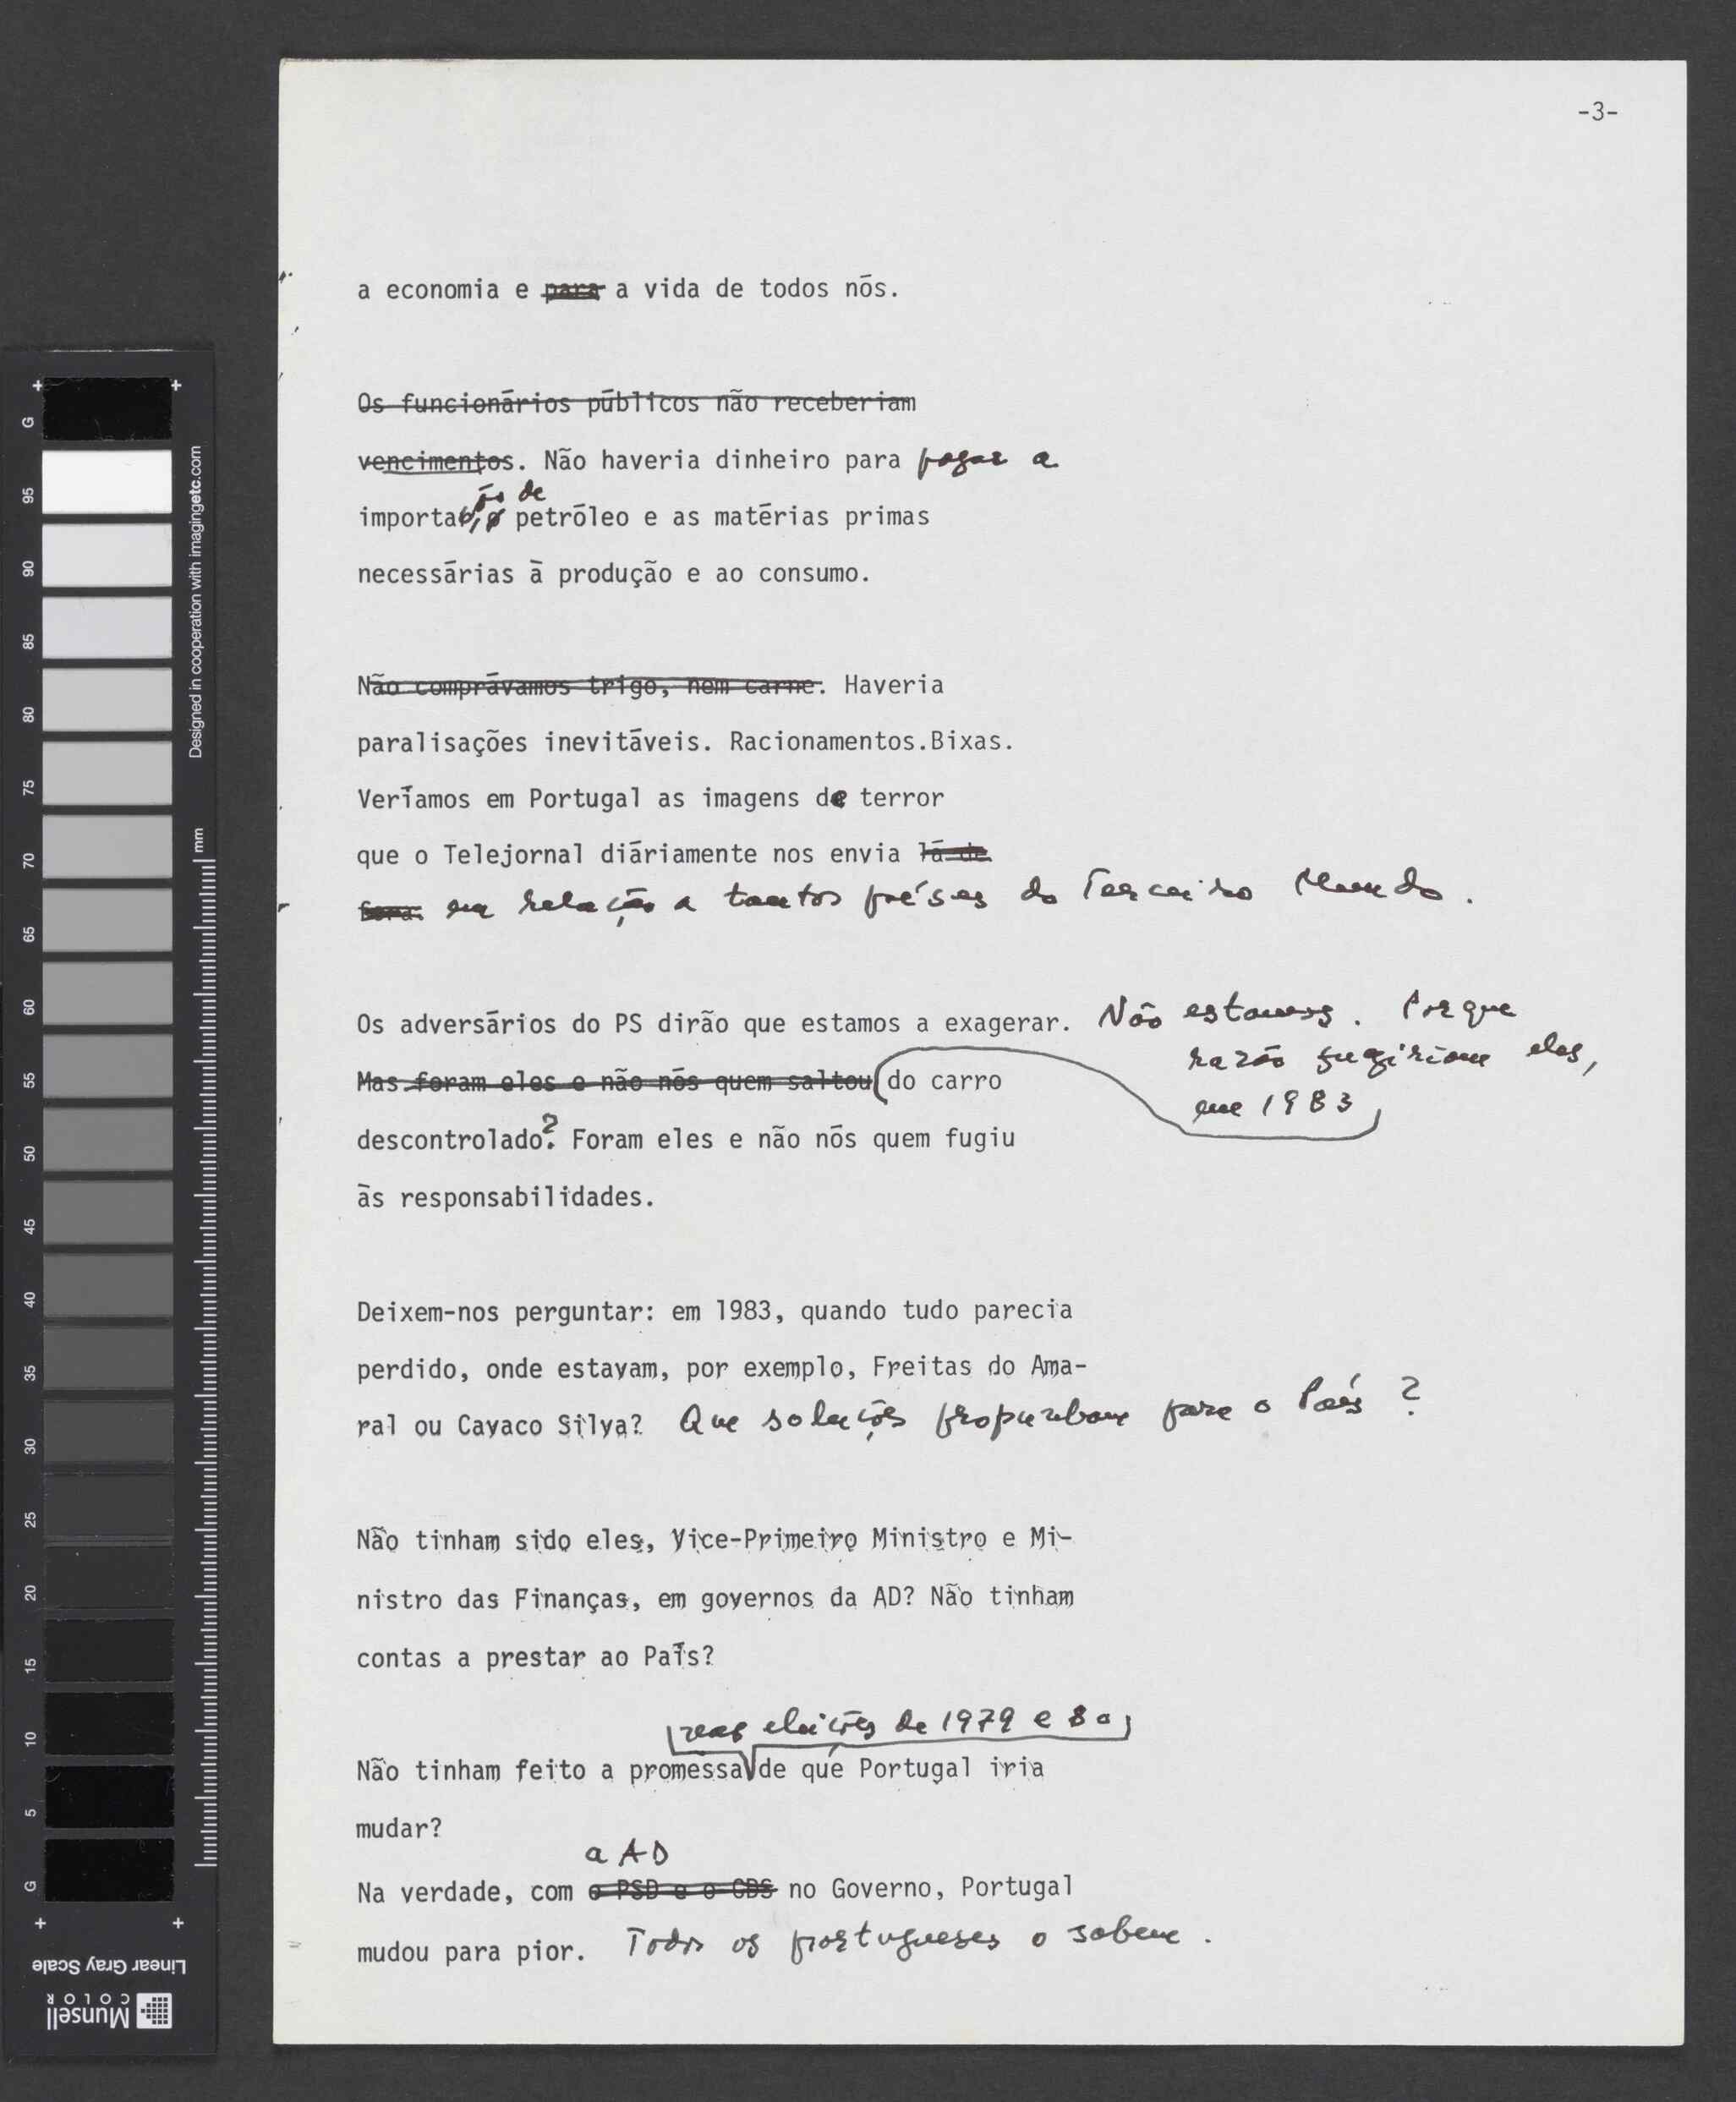 -3-
a economia e para a vida de todos nós.
Os funcionários públicos não receberiam
vencimentos. Não haveria dinheiro para pagar a
ão de
importar, o petróleo e as matérias primas
necessárias à produção e ao consumo.
Não comprávamos trigo, nem carne. Haveria
paralisações inevitáveis. Racionamentos.Bixas.
Veríamos em Portugal as imagens de terror
que o Telejornal diáriamente nos envia lá de
fora. em relação a tantos países do Terceiro Mundo.
Os adversários do PS dirão que estamos a exagerar. Não estamos. Porque
razão fugiriam eles,
em 1983,
Mas foram eles e não nós quem saltou do carro
descontrolado?. Foram eles e não nós quem fugiu
às responsabilidades.
Deixem-nos perguntar: em 1983, quando tudo parecia
perdido, onde estavam, por exemplo, Freitas do Ama-
ral ou Cavaco Silva? Que soluções propunham para o País?
Não tinham sido eles, Vice-Primeiro Ministro e Mi-
nistro das Finanças, em governos da AD? Não tinham
contas a prestar ao País?
nas eleições de 1979 e 80,
Não tinham feito a promessa de que Portugal iria
mudar?
a AD
Na verdade, com o PSD e o CDS no Governo, Portugal
mudou para pior. Todos os portugueses o sabem.
+ +
G
95
90
85
80
75
70
65
60
55
50
45
40
35
30
25
20
15
10
5
G
+ +
Designed in cooperation with imagingetc.com
mm
Linear Gray Scale
Munsell
COLOR